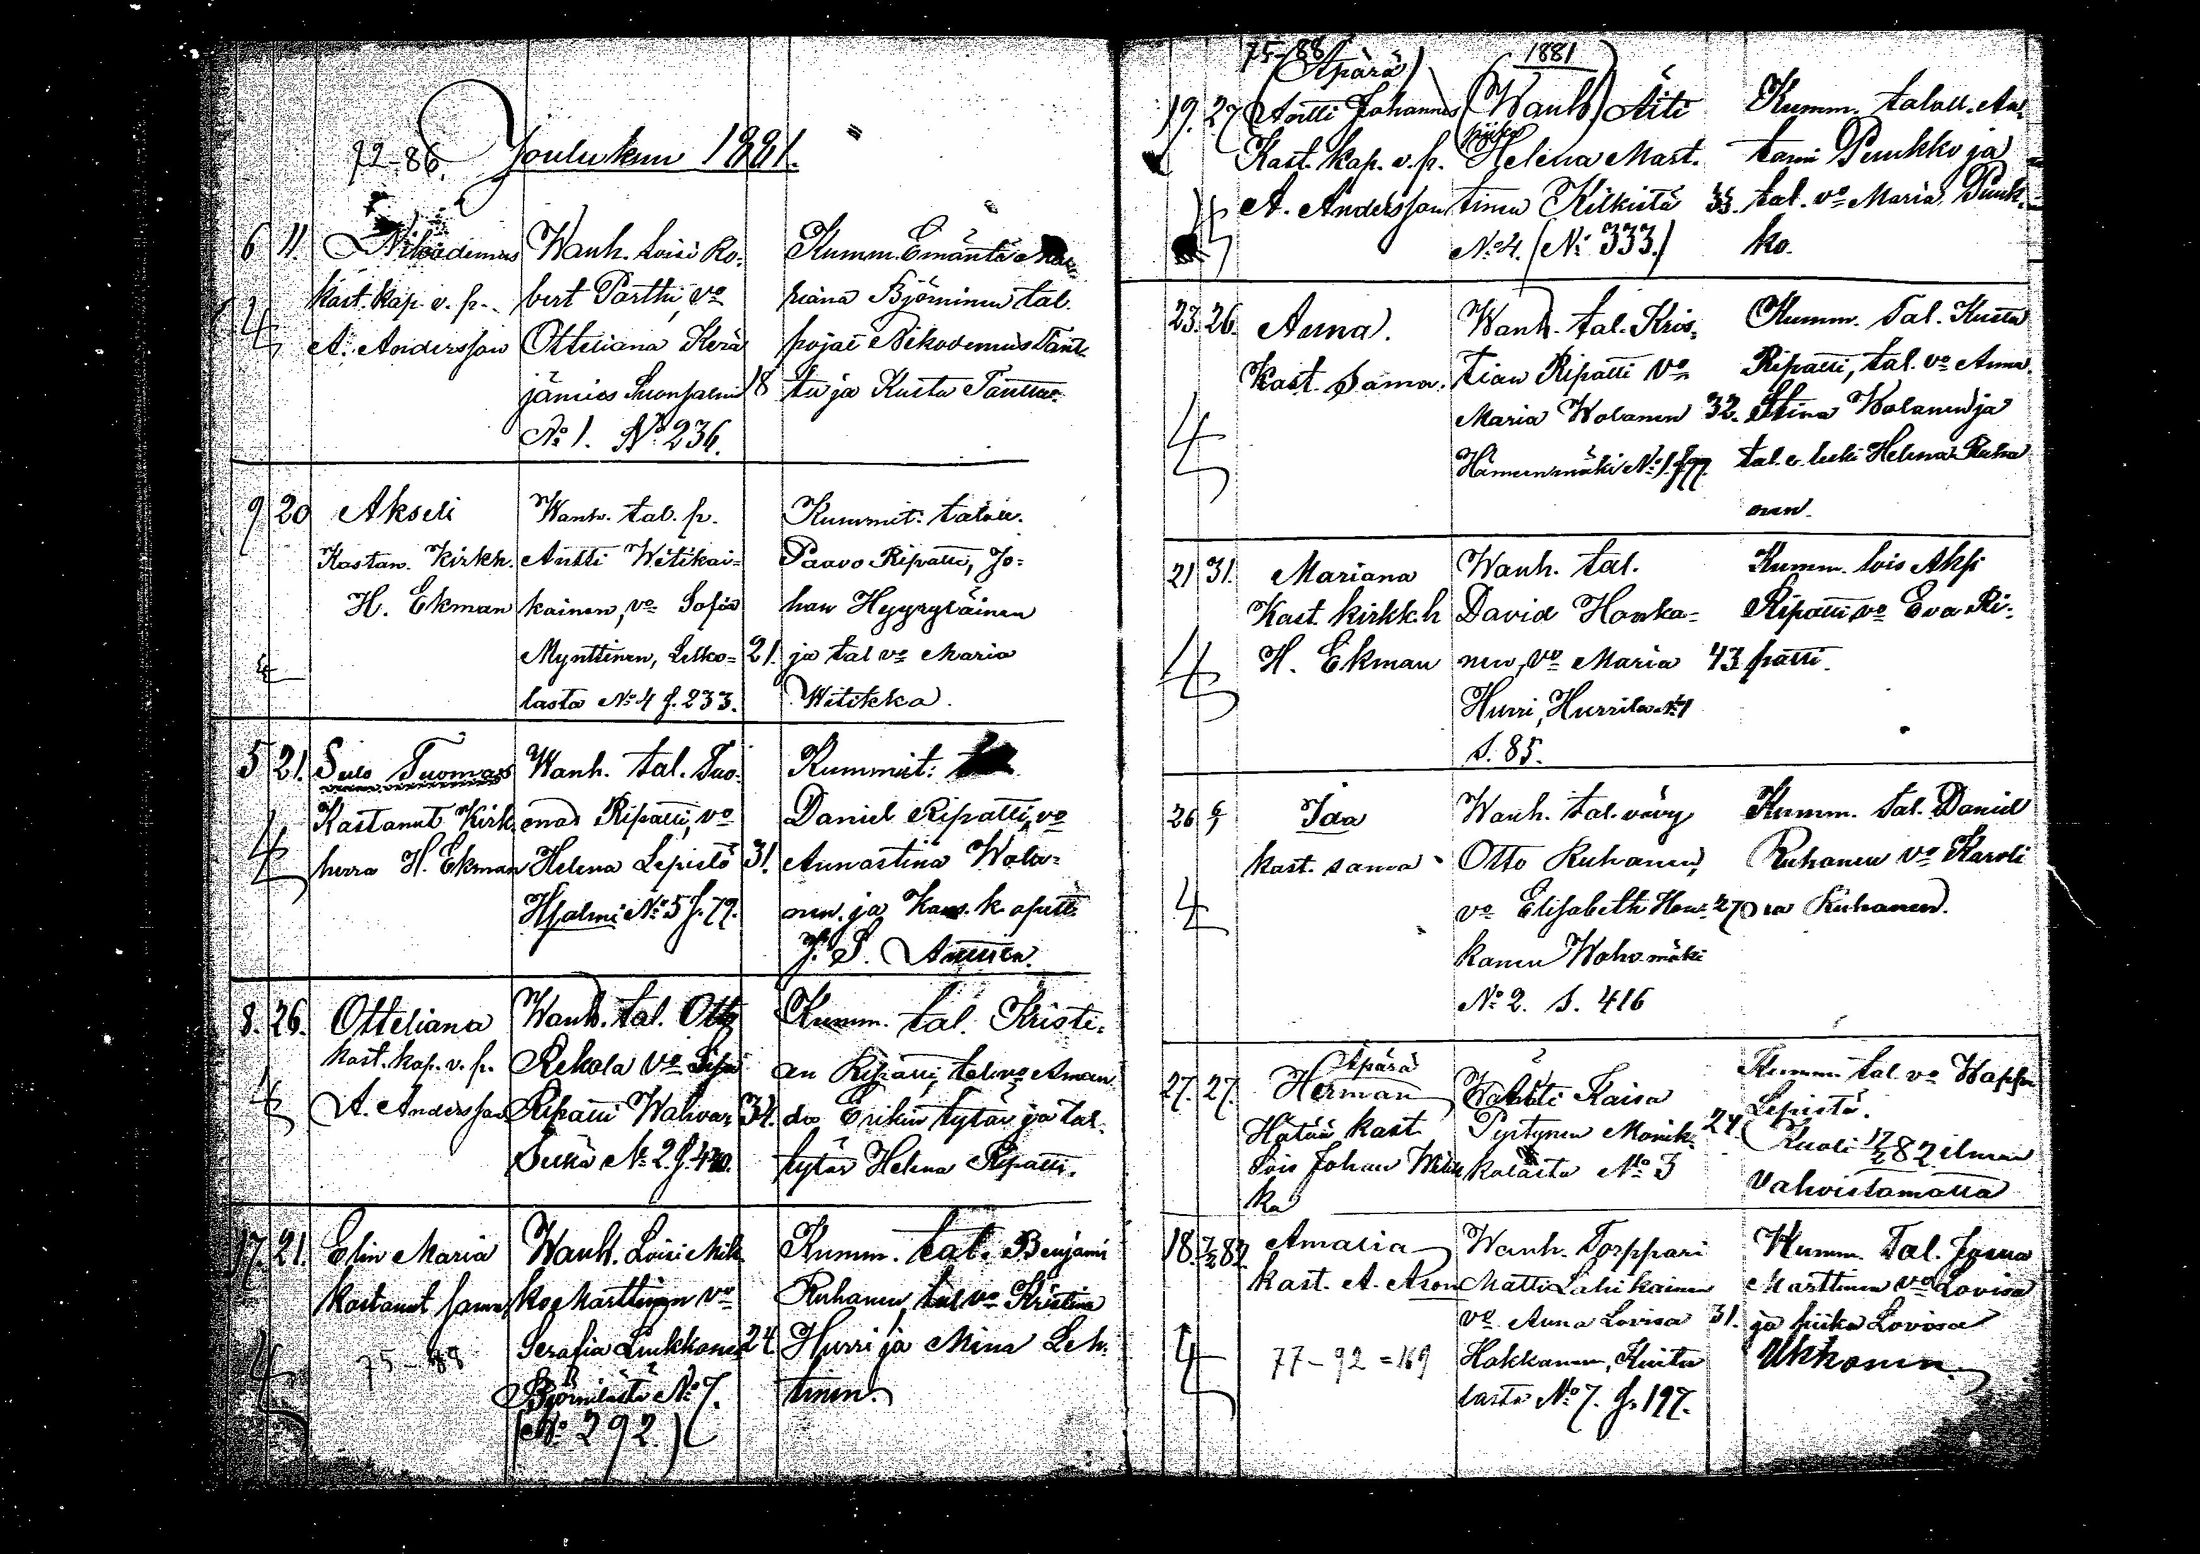 72-86. Joulukuu 1881.
6 11. Nikodemus
Kast. Kap. v. p.
A. Andersson
Wanh. Loisi Ro-
bert Parthi, vo
Otteliana Kerä
jämies Suonsalmi 18
No 1. No 236.
Kumm. Emäntä
riana Björninen tal.
pojat Nikodemus Tant-
tu ja Kusta Tanttu.
9 20 Akseli
Kastan. Kirkh.
H. Ekman
Wanh. tal. p.
Antti Witikai-
kainen, vo Sofia
Mynttinen, Lelko- 21.
lasta No 4 f. 233.
Kummit: talell.
Paavo Ripatti, Jo-
han Hyyryläinen
ja tal vo Maria
Witikka.
5 21. Sulo Tuomas
Kastanut Kirk
herra H. Ekman
Wanh. tal. Tuo-
mas Ripatti, vo
Helena Lepistö 31.
Hjalmi No 5 f. 79.
Kummit:
Daniel Ripatti, vo
Annastina Wola-
nen ja Kans. k. opett.
J. S. Anttila.
8. 26. Otteliana
Kast. kap. v. p.
A. Andersson
Wanh. tal. Otto
Rekola vo
Ripatti Wahvas 34.
No 2 f. 420.
Kumm. tal. Kristi-
an Ripatti, tal. vo Aman
da Erikin tytär ja tal.
tytär Helena Ripatti.
17. 21. Elin Maria
Kastanut sama
75-88
Wanh. Loisi Mik
ko Marttinen vo
Serafia Liukkonen 24.
Björnilästä No 7.
(No 292.)
Kumm. tal. Benjami
Ruhanen, tal vo Kristina
Hurri ja Mina Leh-
tinen.
75-88
(Äpärä) (1881)
19. 27 Antti Johannes
Kast. kap. v. p.
A. Andersson
(Wanh) Äiti
piika Helena Mart.
tinen Kilkistä 33.
No 4. (No 333.)
Kumm. talell. An-
tami Puukko ja
tal. vo Maria Puuk-
ko.
23. 26. Anna.
Kast. sama.
Wanh. tal. Kris-
tian Ripatti vo
Maria Wolanen 32.
Hämeenmäki No 1. f. 77.
Kumm. Tal. Kusta
Ripatti, tal. vo Anna
Stina Wolanen ja
tal. leski Helena Ruha
nen.
21 31. Mariana
Kast. kirkk. h
H. Ekman
Wanh. tal.
David Honka-
nen, vo Maria 43
Hurri, Hurrila No 1
s. 85.
Kumm. lois Aksi
Ripatti, vo Eva Ri-
patti.
26 Ida
kast. sama
Wanh. tal. vävy
Otto Ruhanen,
vo Elisabeth Hon- 27
kanen Wahvamäki
No 2. s. 416
Kumm. tal. Daniel
Ruhanen vo Karoli
na Ruhanen.
27. 27. Äpärä
Herman
Hätä kast
lois Johan Witik
ka
Wanh: Äiti Kaisa
Pystynen Monik- 24.
kalasta No 3
Kumm. tal. vo Wappu
Lepistö.
Kuoli 17/2 82 ilman
Vahvistamatta
18. 82 Amalia
kast. A. Ason
77-92 = 169
Wanh. Torppari
Matti Lahikainen
vo Anna Lovisa 31.
Hokkanen, Kuitu
lasta No 7. f. 197.
Kumm. Tal. Josua
Marttinen vo Lovisa
ja piika Lovisa
Ukkonen.